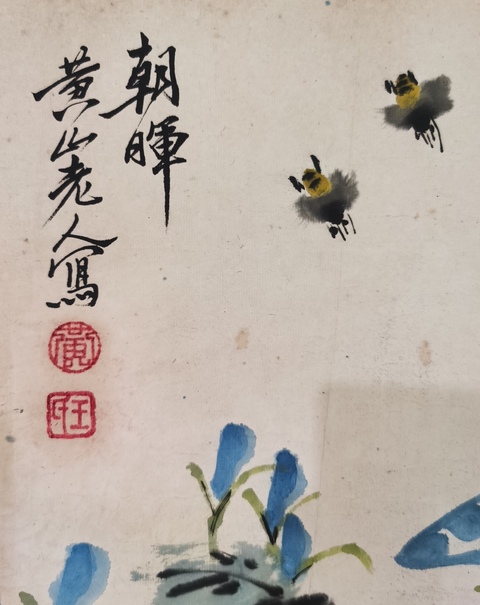 朝暉
黄山老人寫
黃